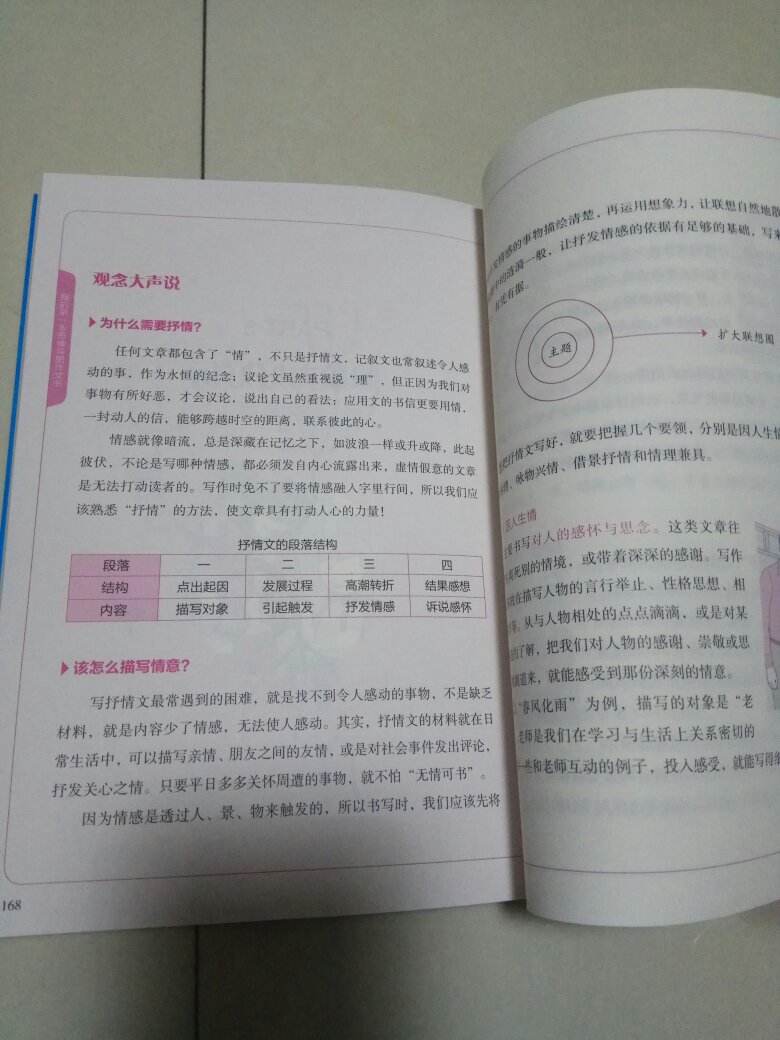 我们第一本思维导图作文书
观念大声说
为什么需要抒情？
任何文章都包含了“情”，不只是抒情文，记叙文也常叙述令人感
动的事，作为永恒的纪念；议论文虽然重视说“理”，但正因为我们对
事物有所好恶，才会议论，说出自己的看法；应用文的书信更要用情，
一封动人的信，能够跨越时空的距离，联系彼此的心。
情感就像暗流，总是深藏在记忆之下，如波浪一样或升或降，此起
彼伏，不论是写哪种情感，都必须发自内心流露出来，虚情假意的文章
是无法打动读者的。写作时免不了要将情感融入字里行间，所以我们应
该熟悉“抒情”的方法，使文章具有打动人心的力量！
抒情文的段落结构
段落 一 二 三 四
结构 点出起因 发展过程 高潮转折 结果感想
内容 描写对象 引起触发 抒发情感 诉说感怀
该怎么描写情意？
写抒情文最常遇到的困难，就是找不到令人感动的事物，不是缺乏
材料，就是内容少了情感，无法使人感动。其实，抒情文的材料就在日
常生活中，可以描写亲情、朋友之间的友情，或是对社会事件发出评论，
抒发关心之情。只要平日多多关怀周遭的事物，就不怕“无情可书”。
因为情感是透过人、景、物来触发的，所以书写时，我们应该先将
168
发情感的事物描绘清楚，再运用想象力，让联想自然地散
中的涟漪一般，让抒发情感的依据有足够的基础，写来
有凭有据。
主题
扩大联想圈
把抒情文写好，就要把握几个要领，分别是因人生情
情、咏物兴情、借景抒情和情理兼具。
因人生情
要书写对人的感怀与思念。这类文章往
死别的情境，或带着深深的感谢。写作
放在描写人物的言行举止、性格思想、相
等。从与人物相处的点点滴滴，或是对某
的了解，把我们对人物的感谢、崇敬或思
道来，就能感受到那份深刻的情意。
“春风化雨”为例，描写的对象是“老
老师是我们在学习与生活上关系密切的
一些和老师互动的例子，投入感受，就能写得